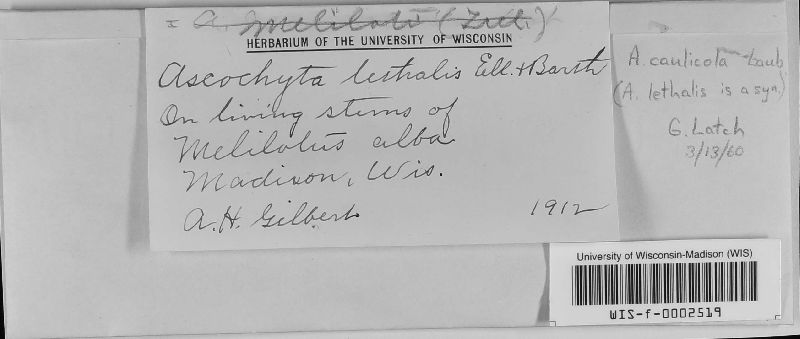 A. Meliloti (Trel.)
HERBARIUM OF THE UNIVERSITY OF WISCONSIN
Ascochyta lethalis Ell. & Barth
On living stems of
Melilotus alba
Madison, Wis.
A.H. Gilbert 1912
A. caulicola Laub.
(A. lethalis is a syn.)
G. Latch
3/13/60
University of Wisconsin-Madison (WIS)
WIS-f-0002519